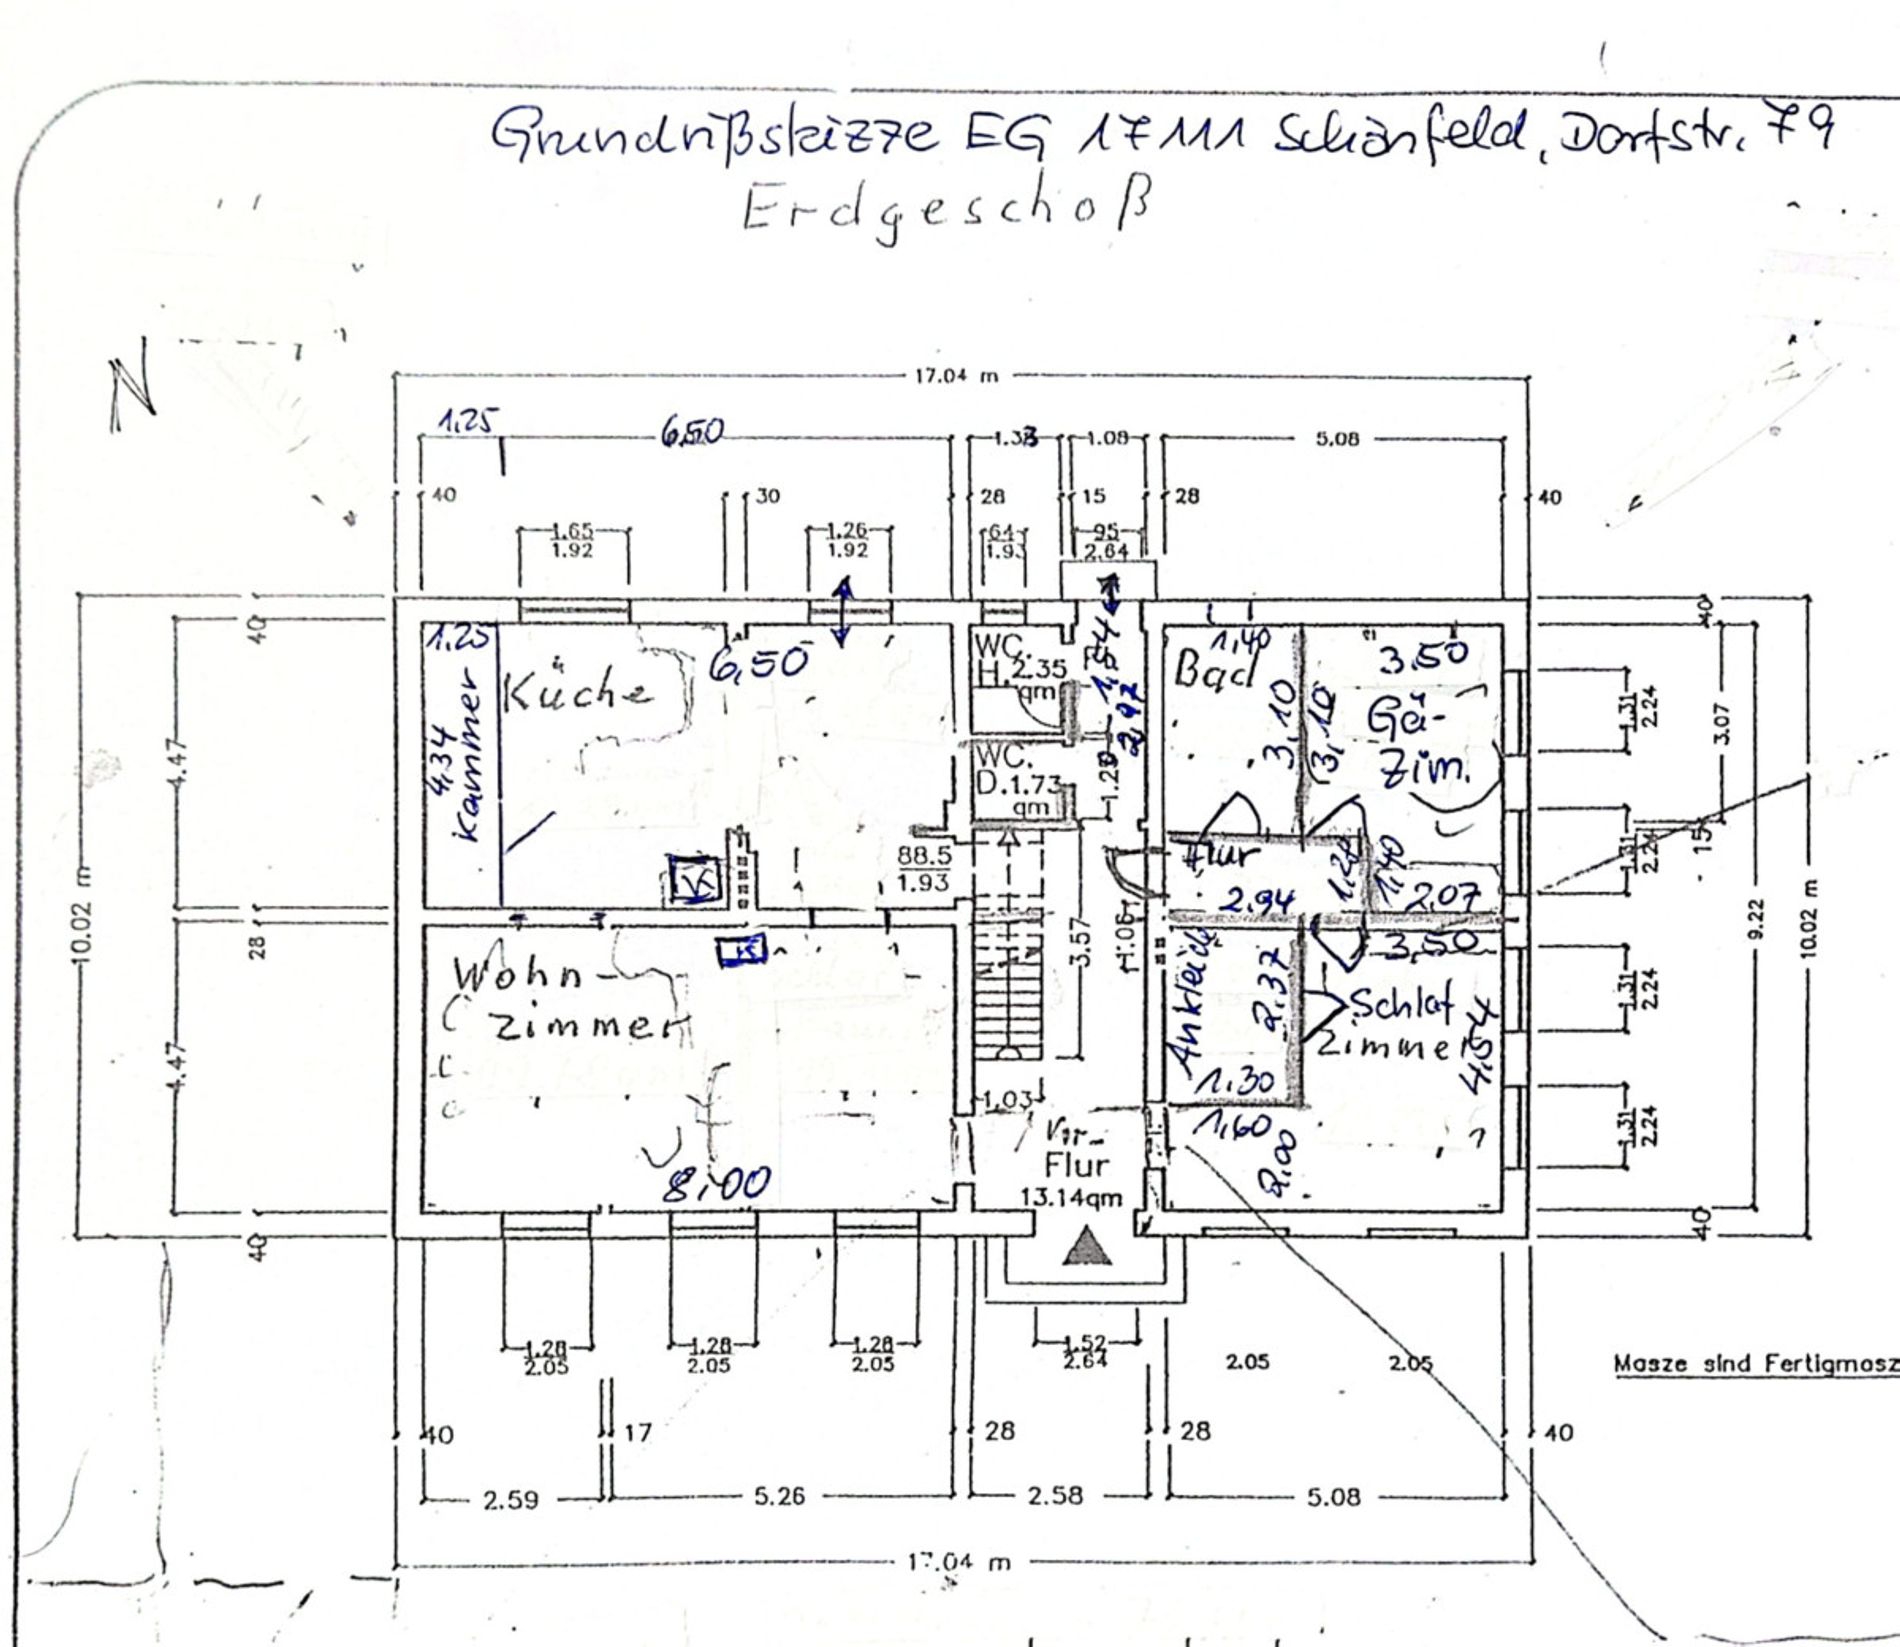 Grundrißskizze EG 17111 Schönfeld, Dorfstr. 79
Erdgeschoß
N
17.04 m
1.25
6.50
1.38
1.08
5.08
40
30
28
15
28
40
1.65
1.92
1.26
1.92
64
1.93
95
2.64
40
4.47
28
4.47
40
10.02 m
1.25
Kammer
4.34
Küche
6,50
WC.
H. 2.35
qm
WC.
D. 1.73
qm
1,54
2,97
1.20
88.5
1.93
3.57
1.03
Wohn-
zimmer
8,00
Vor-
Flur
13.14qm
1,40
Bad
3,10
3,10
3.50
Gä-
Zim.
Flur
2.94
1,20
1,40
2,07
3,50
Ankleide
2,37
1.30
1,60
2,00
Schlaf
Zimmer
4,54
40
1.31
2.24
1.31
2.24
1.31
2.24
1.31
2.24
3.07
15
9.22
10.02 m
40
1.28
2.05
1.28
2.05
1.28
2.05
1.52
2.64
2.05
2.05
Masze sind Fertigmasz
40
17
28
28
40
2.59
5.26
2.58
5.08
17.04 m